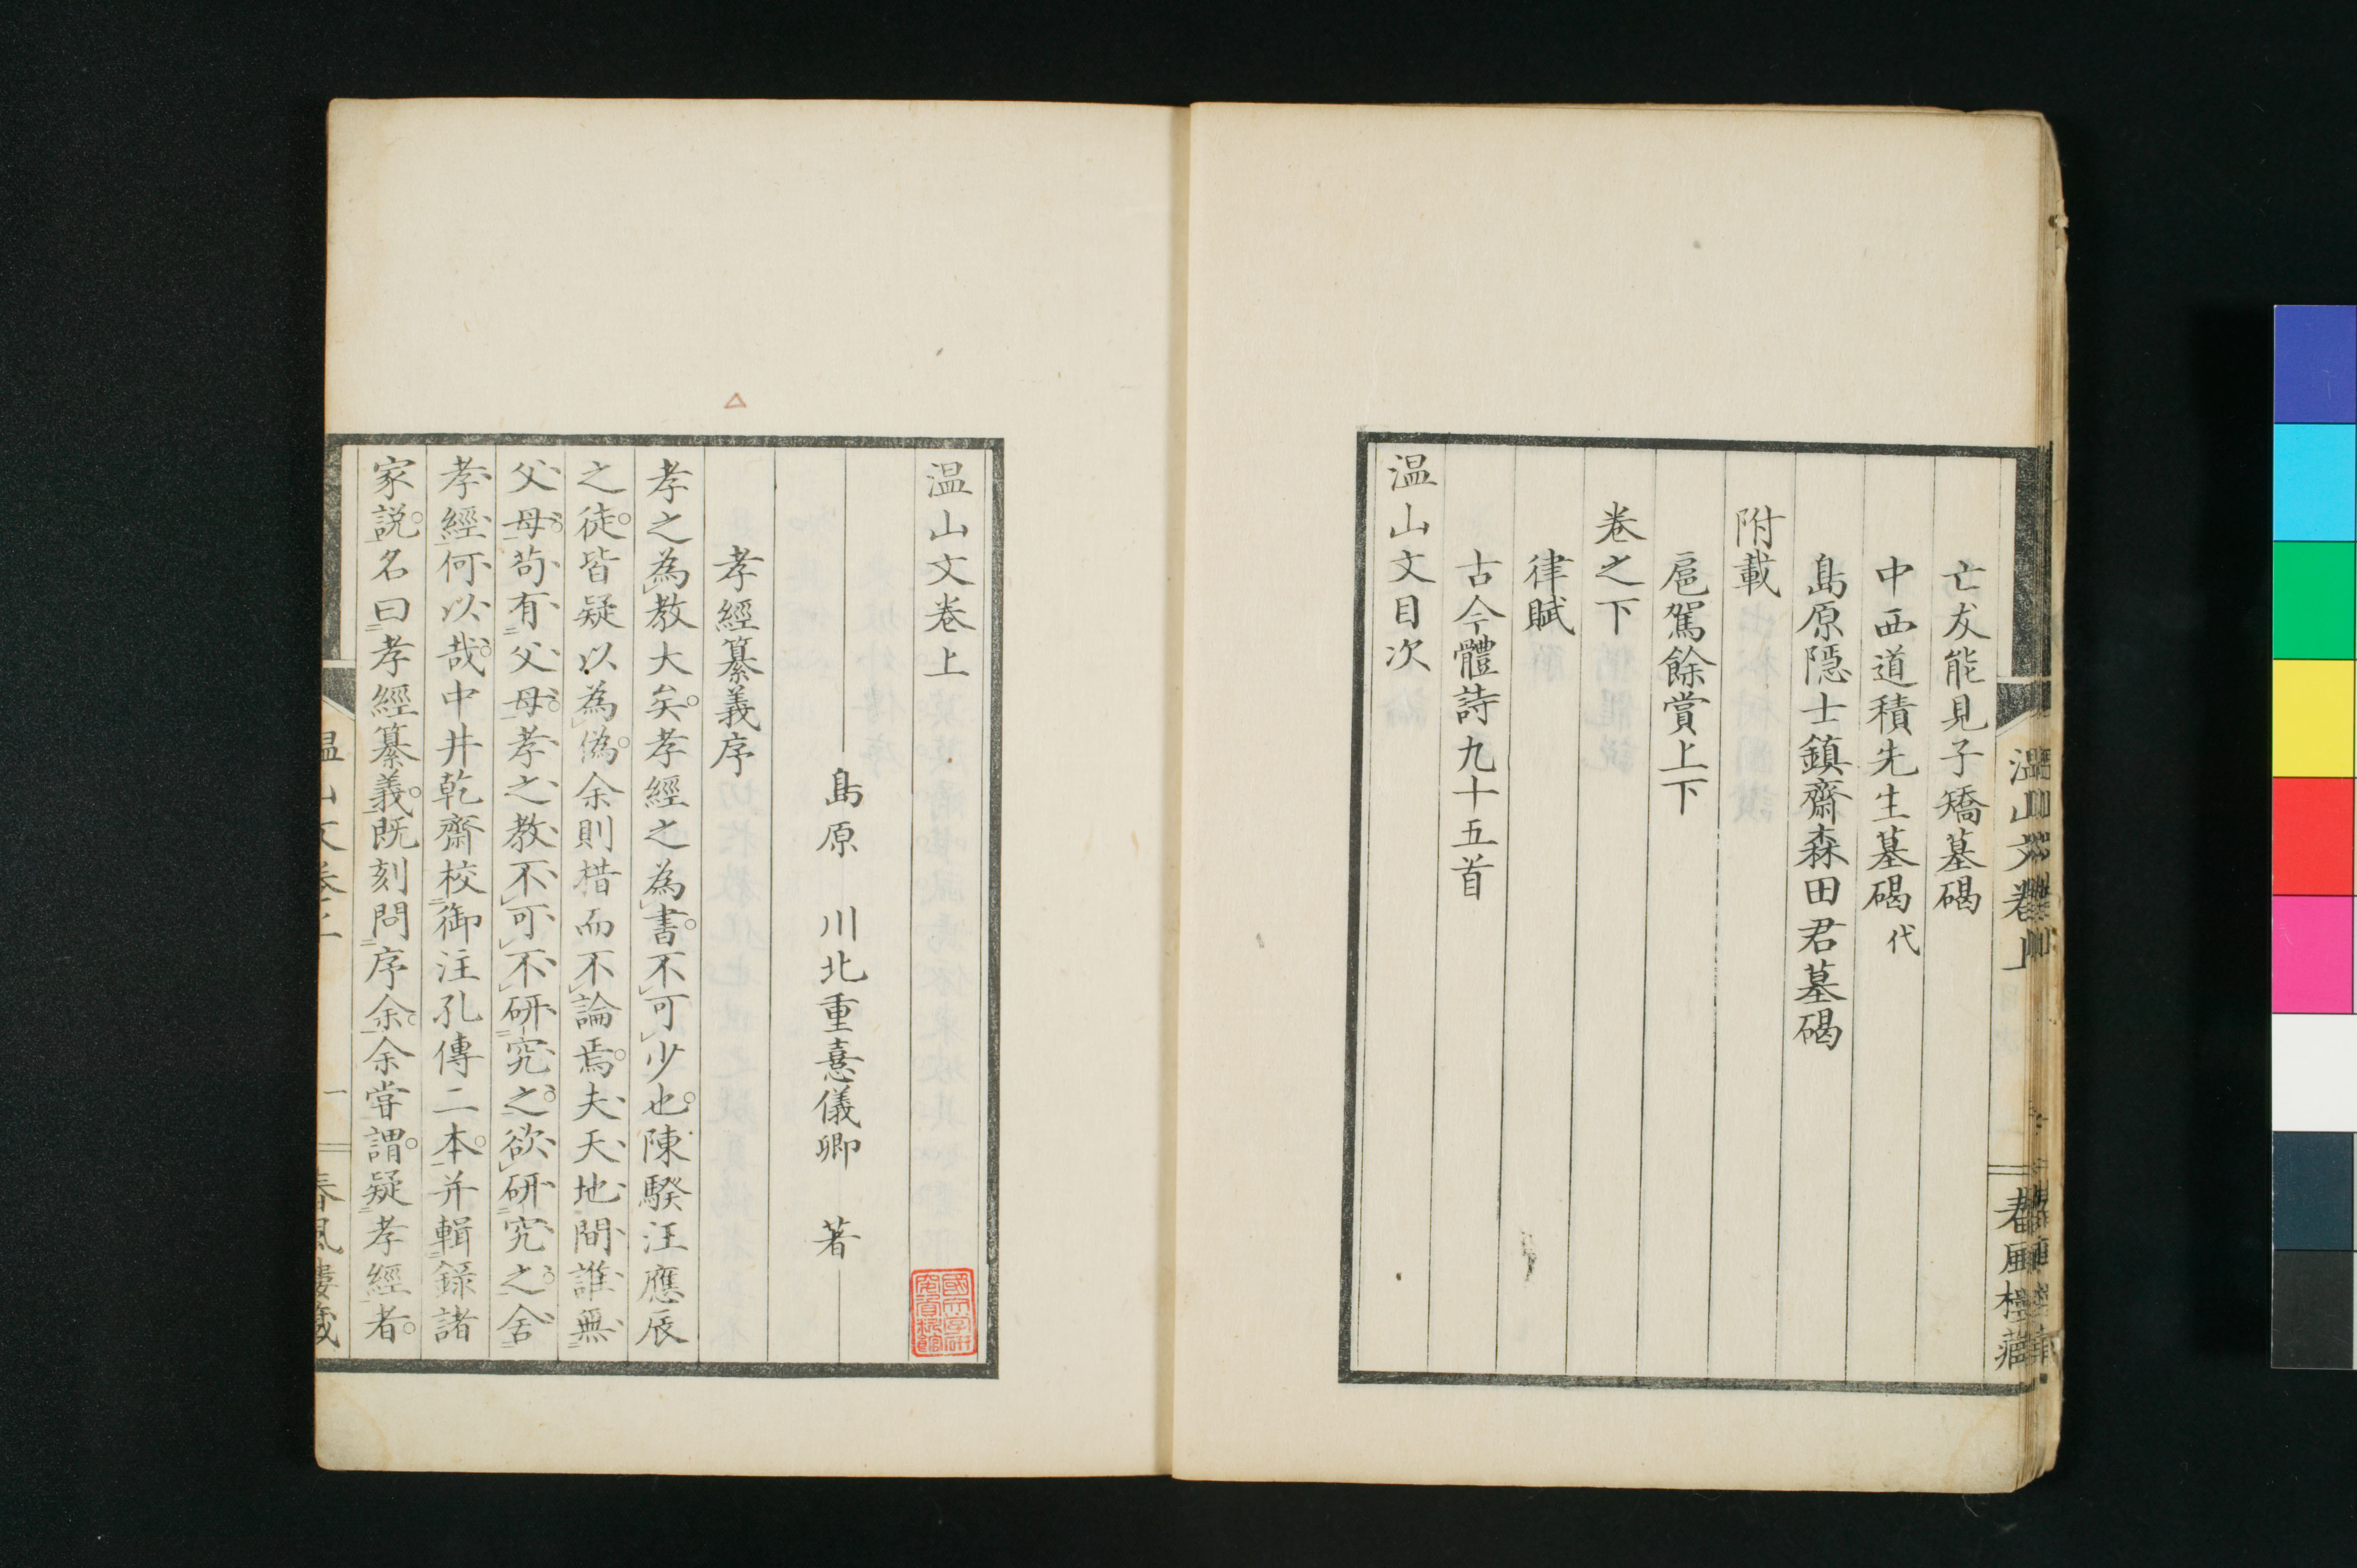 亡友能見子矯墓碣
中西道積先生墓碣 代
島原隠士鎮齋森田君墓碣
附載
扈駕餘賞上下
卷之下
律賦
古今體詩九十五首
温山文目次
温山文卷上
島原 川北重憙儀卿 著
孝經纂義序
孝之為教大矣。孝經之為書。不可少也。陳騤汪應辰
之徒。皆疑以為偽。余則措而不論焉。夫天地間誰無
父母。苟有父母。孝之教不可不研究之。欲研究之。舍
孝經何以哉。中井乾齋校御注孔傳二本。并輯錄諸
家説。名曰孝經纂義。既刻問序余。余甞謂。疑孝經者。
温山文卷上
一
春風樓藏